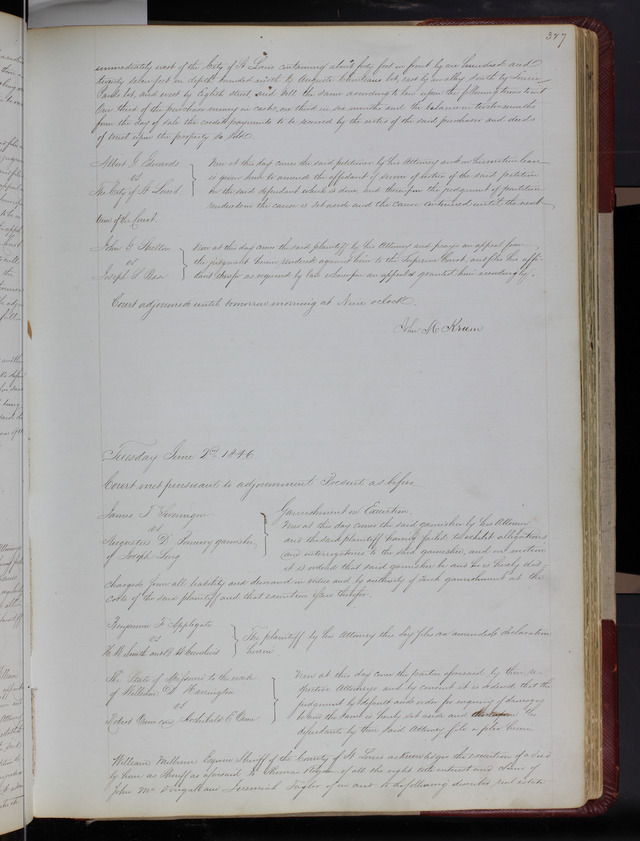 327
immediately west of the City of St Louis containing about forty feet in front by one hundred and
twenty seven feet in depth bounded north by Auguste Chouteau's lot, east by an alley, south by
lot, and west by Eighth street, and sell the same according to law upon the following terms to wit
One third of the purchase money in cash, one third in six months and the balance in twelve months
from the day of sale the credit payments to be secured by the notes of the said purchaser and deeds
of trust upon the property so sold.
Albert G Edwards
vs
The City of St Louis
Now at this day comes the said petitioner by his Attorney and on his motion leave
is given him to amend the affidavit of service of notice of the said petition
on the said defendant which is done, and thereupon the judgment of partition
rendered in the cause is set aside and the cause continued until the next
term of the Court.
John G Shelton
vs
Joseph S
Now at this day comes the said plaintiff by his Attorney and prays an appeal from
the judgment herein rendered against him to the Supreme Court, and files his affi-
davit as required by law wherefore an appeal is granted him accordingly.
Court adjourned until tomorrow morning at Nine oclock.
John M Krum
Tuesday June 2nd 1846
Court met pursuant to adjournment Present as before
James T Swearingen
vs
Augustus D garnishee
of Joseph Ling
Garnishment on Execution.
Now at this day comes the said garnishee by his Attorney
and the said plaintiff having failed to exhibit allegations
and interrogatories to the said garnishee, and on motion
it is ordered that said garnishee be and he is hereby dis-
charged from all liability and demand in virtue and by authority of such garnishment at the
costs of the said plaintiff and that execution issue therefor.
Benjamin F Applegate
vs
N. W. Smith and
The plaintiff by his Attorney this day files an amended declaration
herein
The State of Missouri to the use
of William Harrington
vs
Robert Archibald
Now at this day come the parties aforesaid by their re-
spective Attorneys and by consent it is ordered that the
judgment by default and order for inquiry of damages
be and the same is hereby set aside and The
defendants by their said Attorney file a plea herein
William Milburn Esquire Sheriff of the County of St Louis acknowledges the execution of a deed
by him as Sheriff as aforesaid to Thomas of all the right title interest and claim of
John Mc and Jeremiah Taylor of in and to the following described real estate